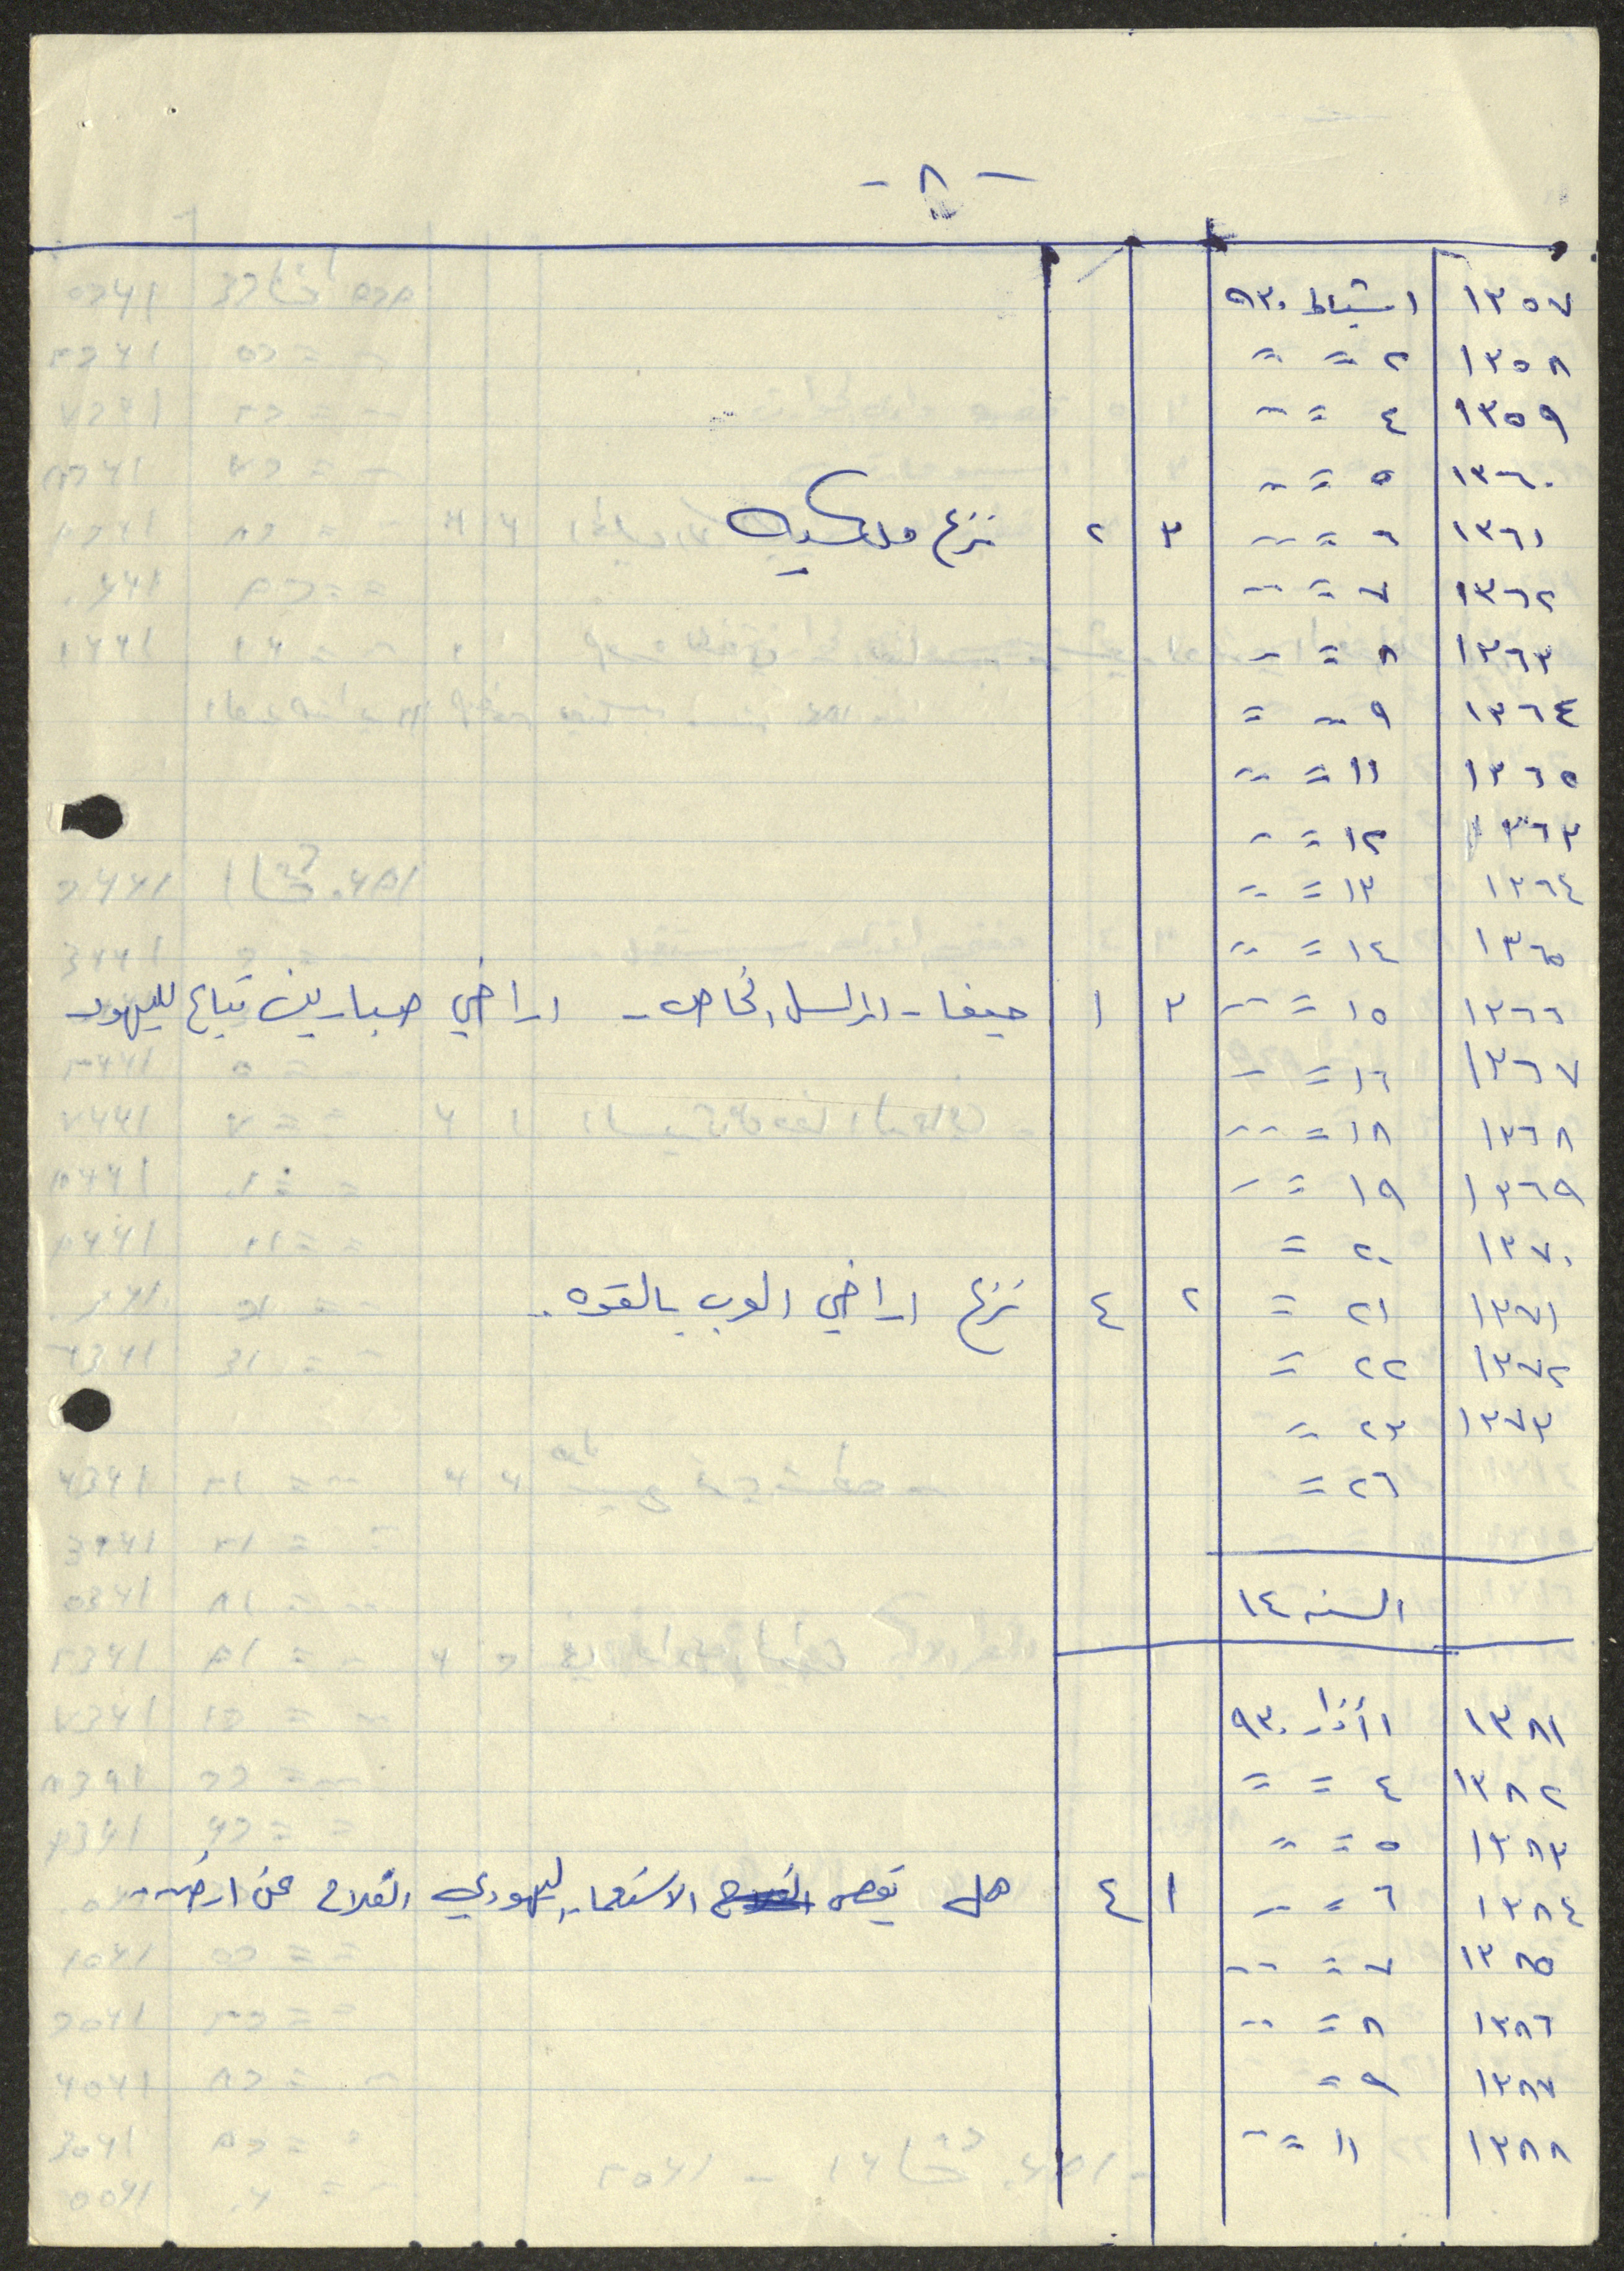 - ٨ -
١٣٥٧ ١ شباط ٩٣٠
١٣٥٨ ٢ = =
١٣٥٩ ٤ = =
١٣٦٠ ٥ = =
١٣٦١ ٦ = = ٣ ٢ نزع ملكيه
١٣٦٢ ٧ = =
١٣٦٣ ٨ = =
١٣٦٤ ٩ = =
١٣٦٥ ١١ = =
١٣٦٣ ١٢ = =
١٣٦٤ ١٣ = =
١٣٦٥ ١٤ = =
١٣٦٦ ١٥ = = ٣ ١ حيفا - المراسل الخاص - اراضي صبارين تباع لليهود
١٣٦٧ ١٦ = =
١٣٦٨ ١٨ = =
١٣٦٩ ١٩ = =
١٣٧٠ ٢٠ =
١٣٧١ ٢١ = ٢ ٤ نزع اراضي العرب بالقوه ..
١٣٧٢ ٢٢ =
١٣٧٣ ٢٣ =
٢٦ =
السنه ١٤
١٣٨١ ١ آذار ٩٣٠
١٣٨٢ ٤ = =
١٣٨٣ ٥ = =
١٣٨٤ ٦ = = ١ ٤ هل يقصي الاستعمار اليهودي الفلاح عن ارضه ..
١٣٨٥ ٧ = =
١٣٨٦ ٨ = =
١٣٨٧ ٩ =
١٣٨٨ ١١ = =